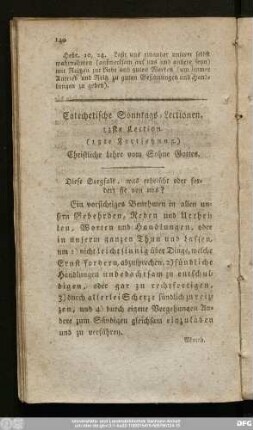 140
Hebr. 10, 24. Laßt uns einander unsere selbst
wahrnehmen
mit Reitzen zur Liebe und guten Werken
Antrieb und Reitz zu guten Gesinnungen und Hand-
lungen zu geben).
Catechetische Sonntags-Lectionen.
Lection
Fortsetzung
Christliche Lehre vom Sohne Gottes.
Diese Sorgfalt, was erheischt oder for-
dert sie von uns?
Ein vorsichtiges Benehmen in allen un-
sern Gebehrden, Reden und Urthei-
len, Worten und Handlungen, oder
in unserm ganzen Thun und Lassen,
um 1) nicht leichtsinnig über Dinge, welche
Ernst fordern, abzusprechen, 2) sündliche
Handlungen unbedachtsam zu entschul-
digen, oder gar zu rechtfertigen,
3) durch allerlei Scherze sündlich zu reit
zen, und 4) durch eigene Vergehungen An-
dere zum Sündigen gleichsam einzuladen
und zu verführen.